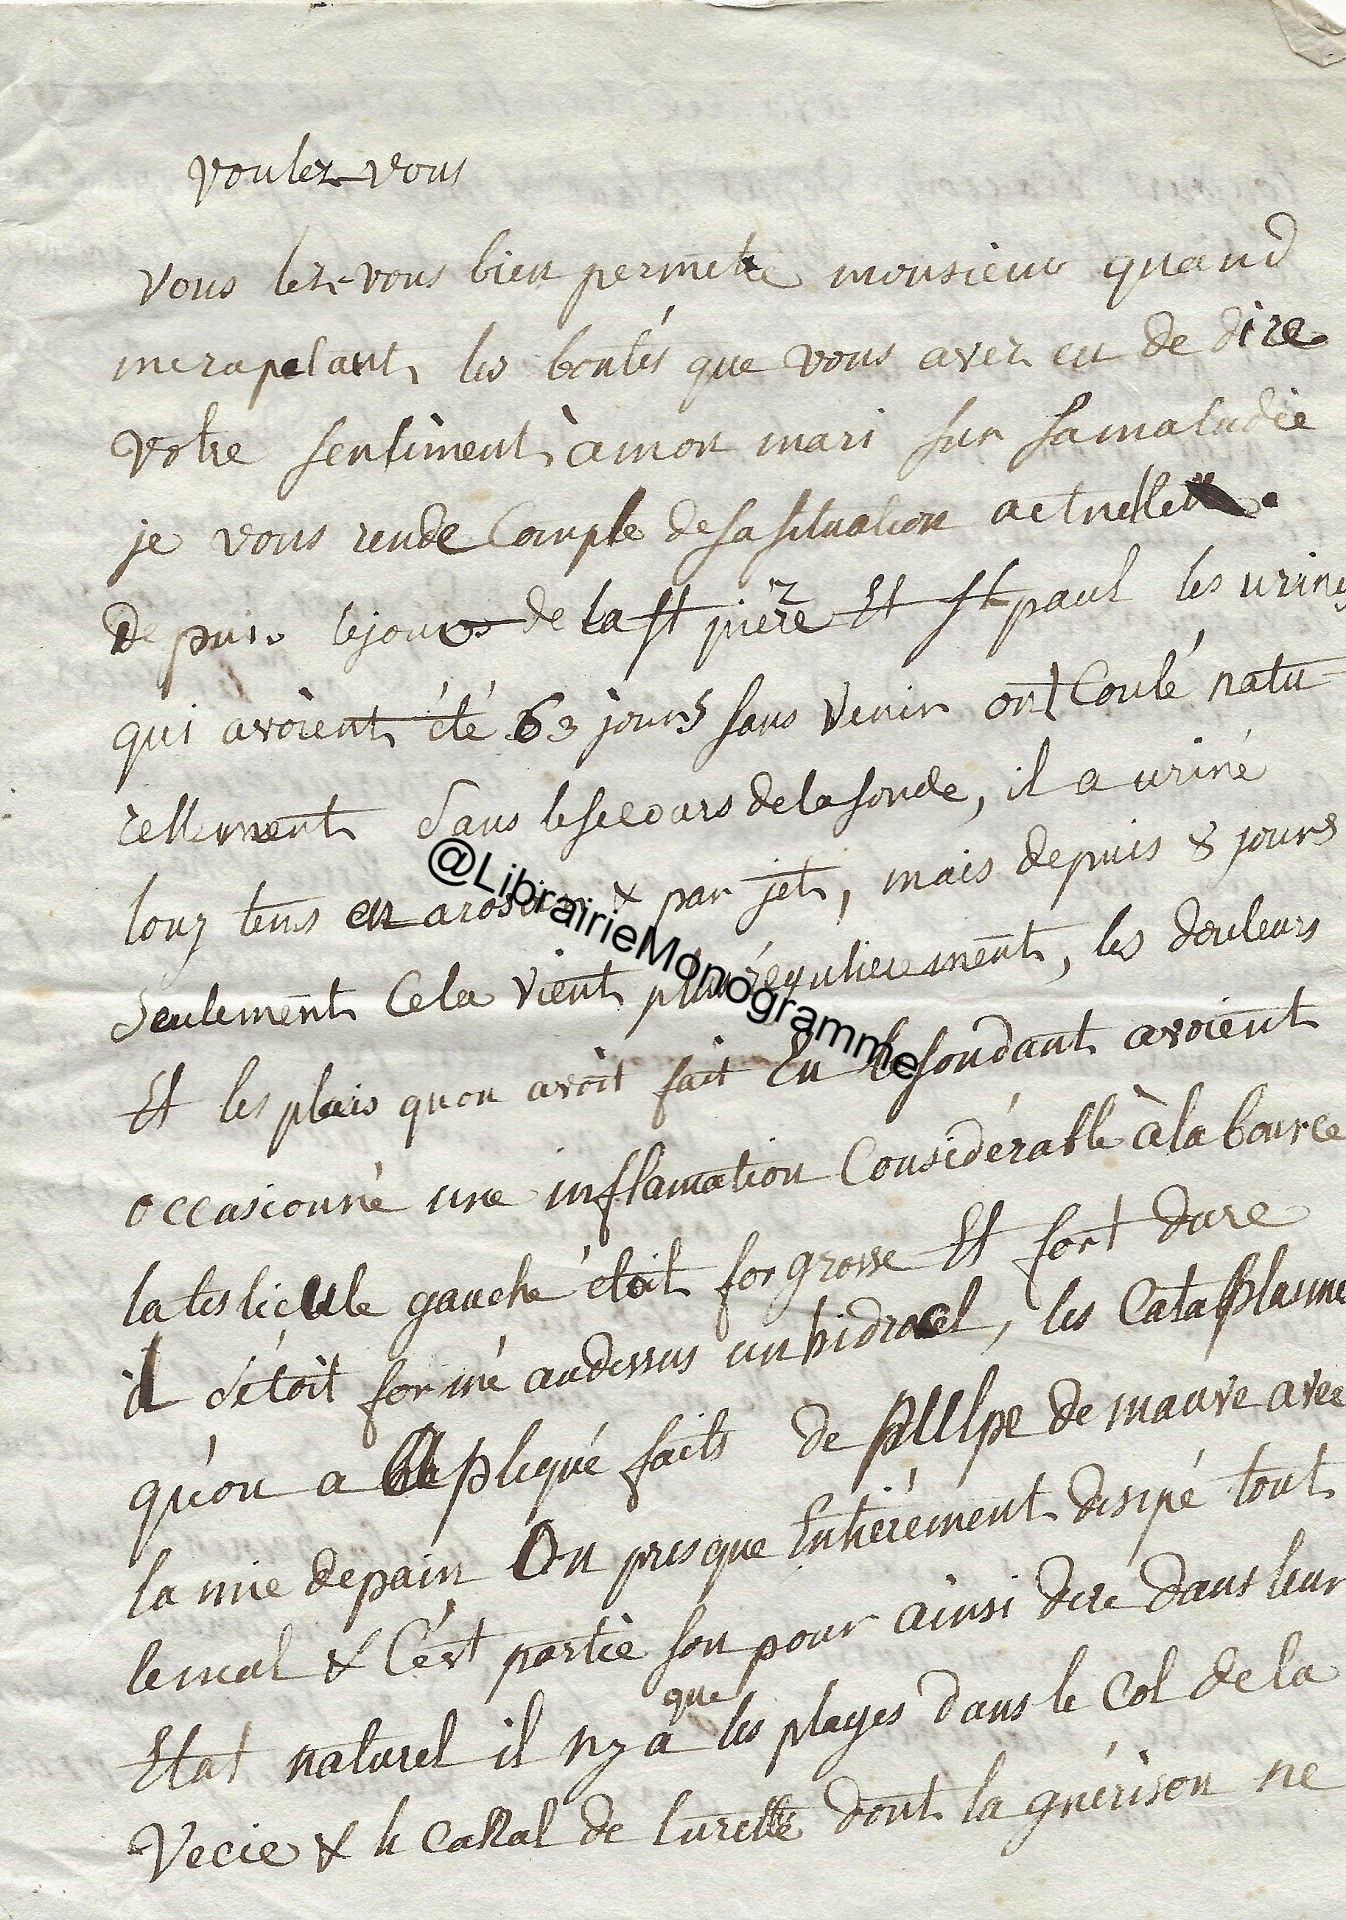 voulez vous
vous lez-vous bien permetre monsieur quand
merapelant les bontés que vous avez eu de dire
votre sentiment à mon mari sur sa maladie
je vous rende Compte de sa situation actuelle
Depuis lejour de la st pière Et st paul les urines
qui avoient été 63 jours sans venir ont Coulé natu-
rellement sans lesecours delasonde, il a uriné
lonz tems en arosoir & par jet, mais depuis 8 jours
seulement Cela vient plus régulierement, les douleurs
Et les plais quon avoit fait En le sondant avoient
occasionné une inflamation Considérable à la bource
la testicule gauche étoit for grosse Et fort dure
il sétoit formé audessus un hidrocel, les Cataplasme
qu'on a apliqué faits de pulpe de mauve avec
la mie depain On presque Entièrement disipé tout
lemal & C'ést partie son pour ainsi dire dans leur
Etat naturel il ny a que les playes dans le Col de la
Vecie & le Canal de lurettre dont la guérison ne
@LibrairieMonogramme